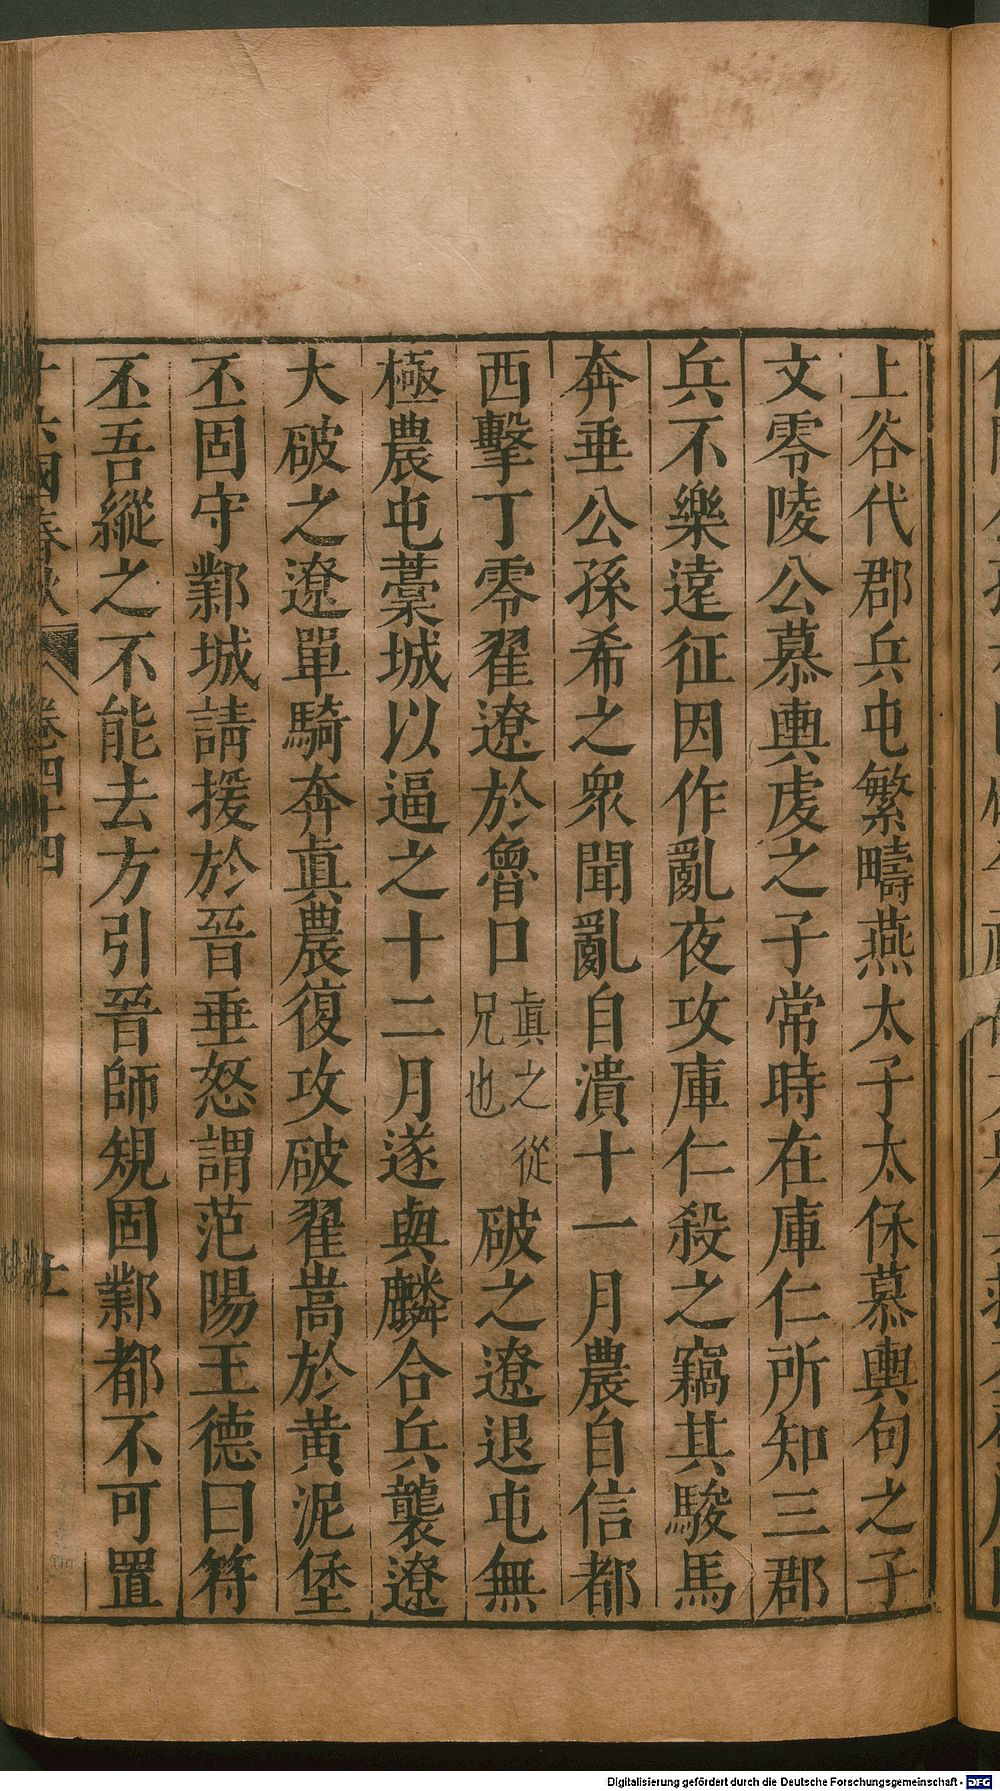 上谷代郡兵屯繁畤燕太子太保慕輿句之子
文零陵公慕輿虔之子常時在庫仁所知三郡
兵不樂遠征因作亂夜攻庫仁殺之竊其駿馬
奔垂公孫希之衆聞亂自潰十一月農自信都
西擊丁零翟遼於魯口眞之從兄也破之遼退屯無
極農屯藁城以逼之十二月遂與麟合兵襲遼
大破之遼單騎奔眞農復攻破翟嵩於黃泥堡
丕固守鄴城請援於晉垂怒謂范陽王德曰符
丕吾縱之不能去方引晉師規固鄴都不可置
十六國春秋 卷四十四
Digitalisierung gefördert durch die Deutsche Forschungsgemeinschaft - DFG